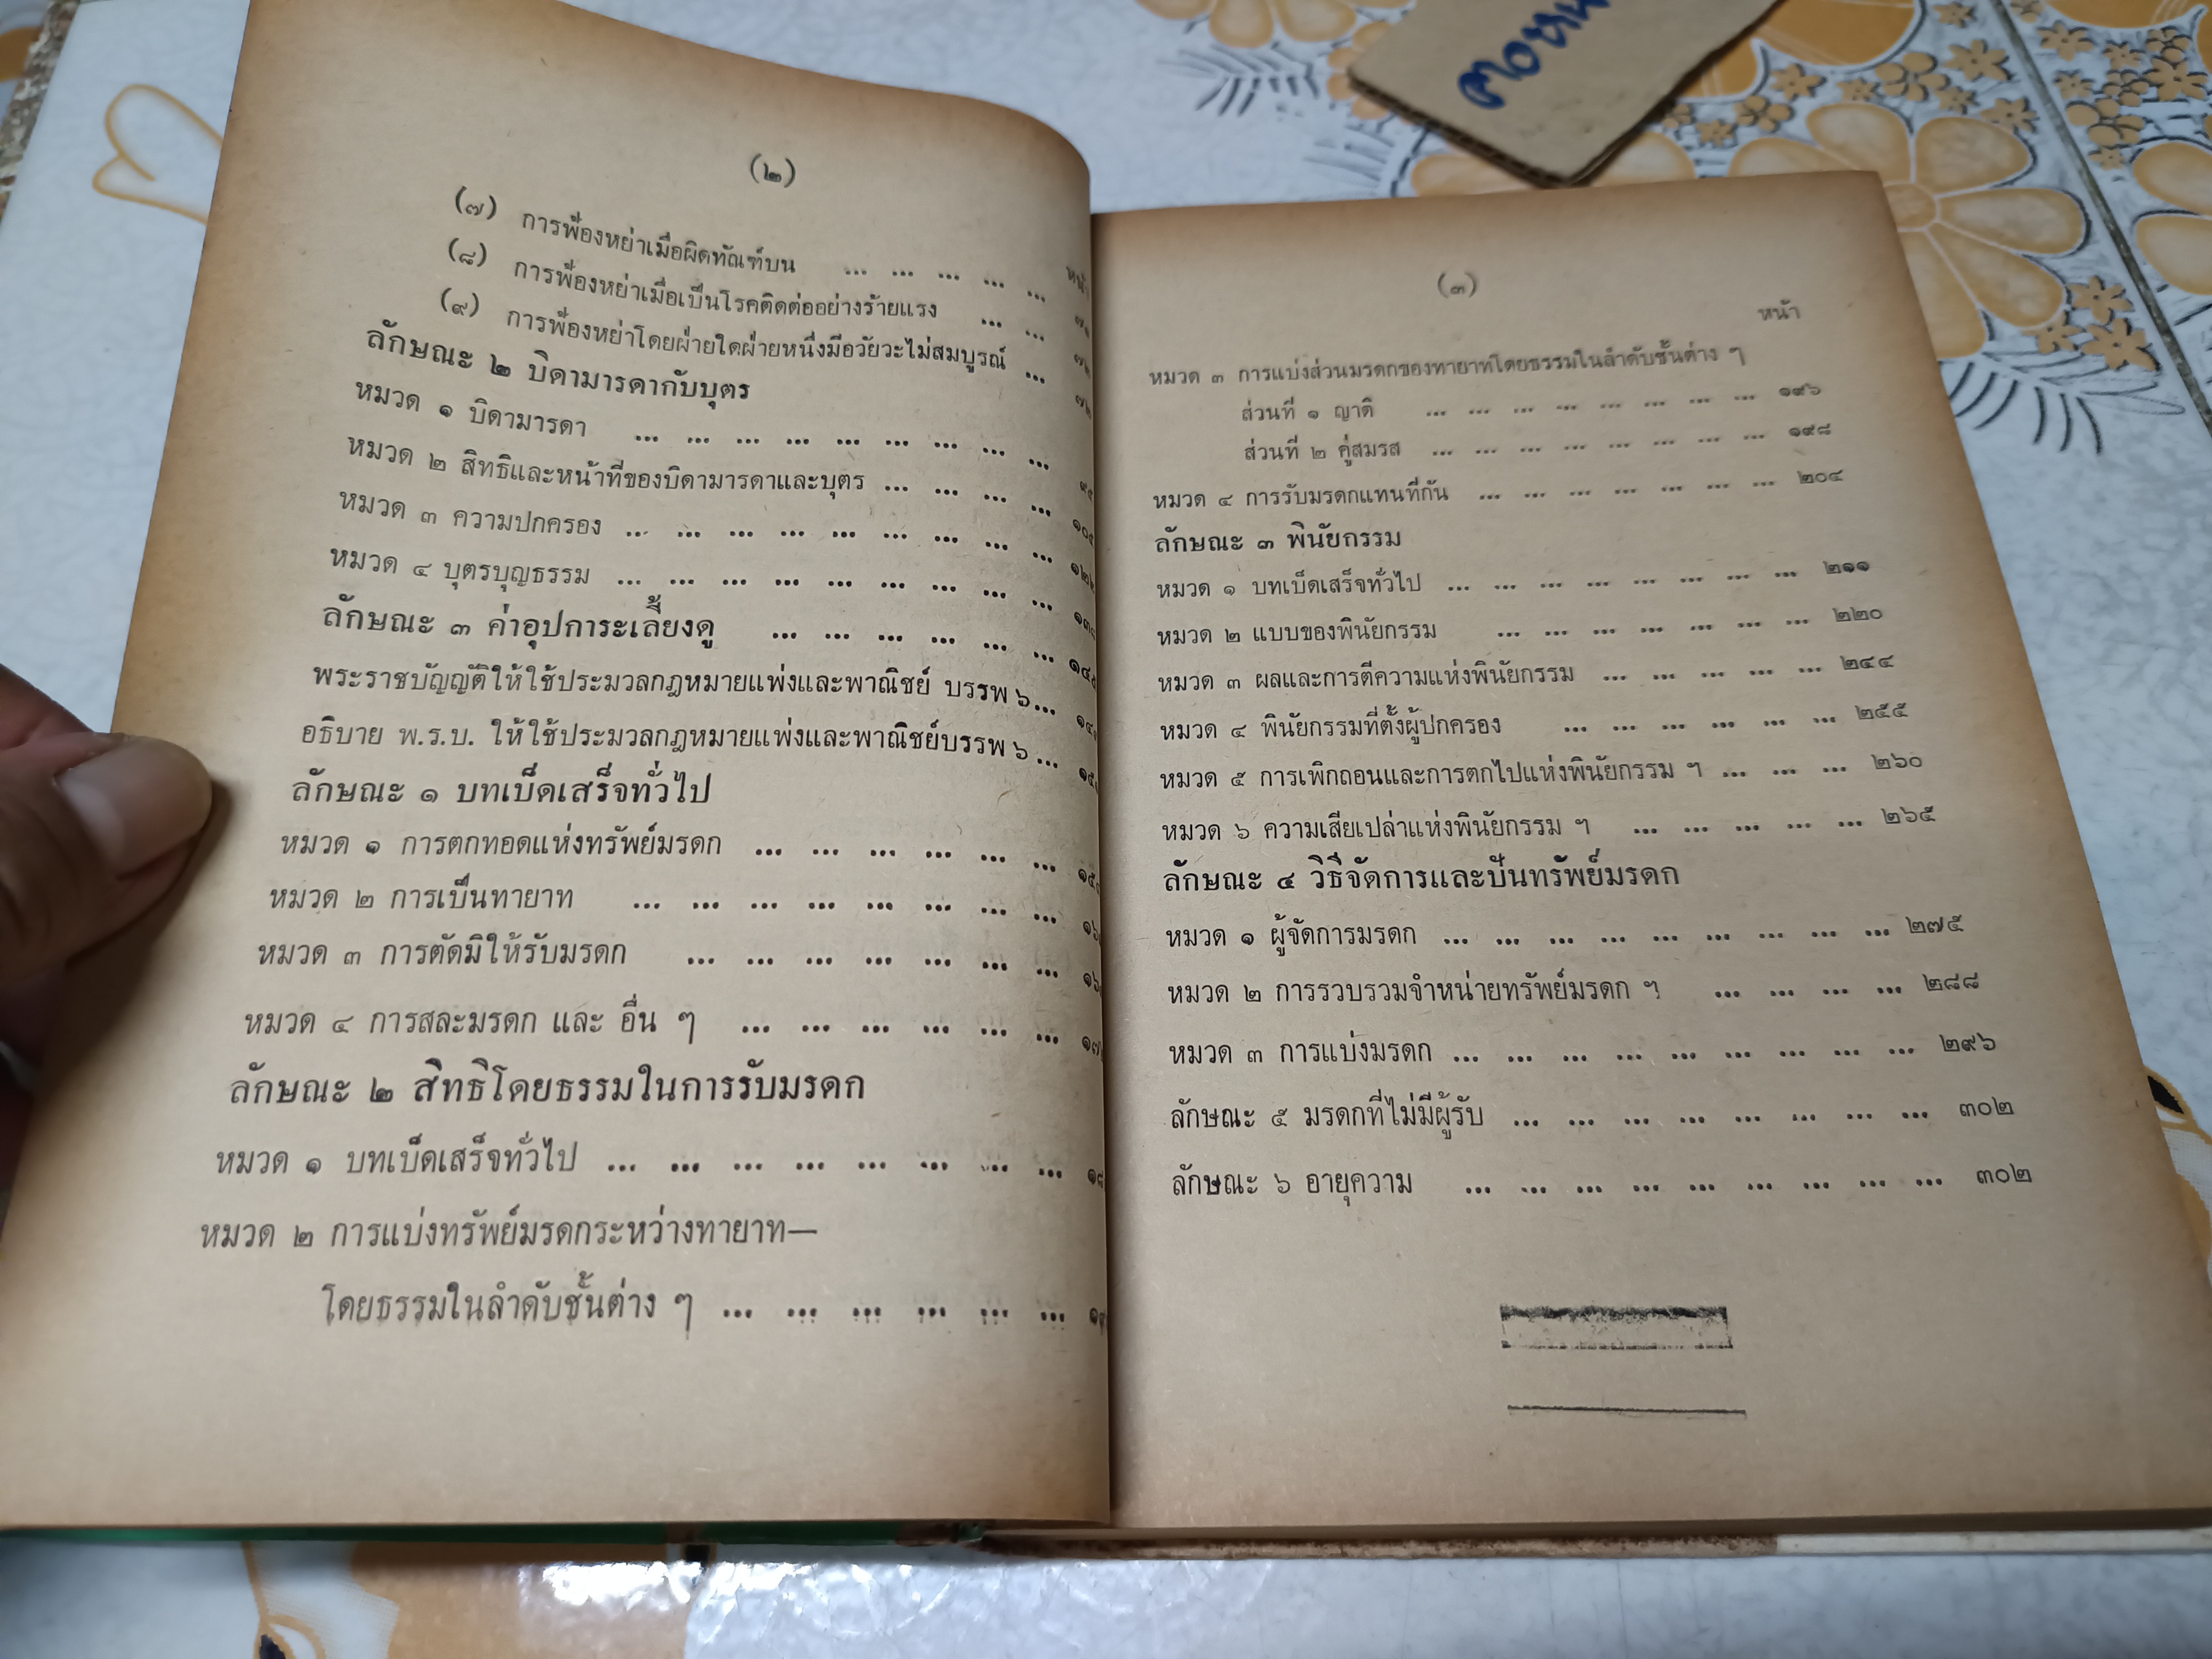 (๒)
หน้า
(๗) การฟ้องหย่าเมื่อผิดทัณฑ์บน ... ... ... ... ...
(๘) การฟ้องหย่าเมื่อเป็นโรคติดต่ออย่างร้ายแรง ... ...
(๙) การฟ้องหย่าโดยฝ่ายใดฝ่ายหนึ่งมีอวัยวะไม่สมบูรณ์ ...
ลักษณะ ๒ บิดามารดากับบุตร
หมวด ๑ บิดามารดา ... ... ... ... ... ... ... ... ...
หมวด ๒ สิทธิและหน้าที่ของบิดามารดาและบุตร ... ... ... ...
หมวด ๓ ความปกครอง ... ... ... ... ... ... ... ... ...
หมวด ๔ บุตรบุญธรรม ... ... ... ... ... ... ... ... ...
ลักษณะ ๓ ค่าอุปการะเลี้ยงดู ... ... ... ... ... ...
พระราชบัญญัติให้ใช้ประมวลกฎหมายแพ่งและพาณิชย์ บรรพ ๖ ...
อธิบาย พ.ร.บ. ให้ใช้ประมวลกฎหมายแพ่งและพาณิชย์บรรพ ๖ ...
ลักษณะ ๑ บทเบ็ดเสร็จทั่วไป
หมวด ๑ การตกทอดแห่งทรัพย์มรดก ... ... ... ... ... ...
หมวด ๒ การเป็นทายาท ... ... ... ... ... ... ... ...
หมวด ๓ การตัดมิให้รับมรดก ... ... ... ... ... ... ...
หมวด ๔ การสละมรดก และ อื่น ๆ ... ... ... ... ... ...
ลักษณะ ๒ สิทธิโดยธรรมในการรับมรดก
หมวด ๑ บทเบ็ดเสร็จทั่วไป ... ... ... ... ... ... ... ...
หมวด ๒ การแบ่งทรัพย์มรดกระหว่างทายาท—
โดยธรรมในลำดับชั้นต่าง ๆ ... ... ... ... ... ...
(๓)
หน้า
หมวด ๓ การแบ่งส่วนมรดกของทายาทโดยธรรมในลำดับชั้นต่าง ๆ
ส่วนที่ ๑ ญาติ ... ... ... ... ... ... ... ... ๑๙๖
ส่วนที่ ๒ คู่สมรส ... ... ... ... ... ... ... ... ๑๙๘
หมวด ๔ การรับมรดกแทนที่กัน ... ... ... ... ... ... ... ๒๐๔
ลักษณะ ๓ พินัยกรรม
หมวด ๑ บทเบ็ดเสร็จทั่วไป ... ... ... ... ... ... ... ... ๒๑๑
หมวด ๒ แบบของพินัยกรรม ... ... ... ... ... ... ... ๒๒๐
หมวด ๓ ผลและการตีความแห่งพินัยกรรม ... ... ... ... ... ๒๔๔
หมวด ๔ พินัยกรรมที่ตั้งผู้ปกครอง ... ... ... ... ... ... ๒๕๕
หมวด ๕ การเพิกถอนและการตกไปแห่งพินัยกรรม ฯ ... ... ... ๒๖๐
หมวด ๖ ความเสียเปล่าแห่งพินัยกรรม ฯ ... ... ... ... ... ๒๖๕
ลักษณะ ๔ วิธีจัดการและปันทรัพย์มรดก
หมวด ๑ ผู้จัดการมรดก ... ... ... ... ... ... ... ... ... ๒๗๕
หมวด ๒ การรวบรวมจำหน่ายทรัพย์มรดก ฯ ... ... ... ... ๒๘๘
หมวด ๓ การแบ่งมรดก ... ... ... ... ... ... ... ... ... ๒๙๖
ลักษณะ ๕ มรดกที่ไม่มีผู้รับ ... ... ... ... ... ... ... ... ๓๐๒
ลักษณะ ๖ อายุความ ... ... ... ... ... ... ... ... ... ๓๐๒